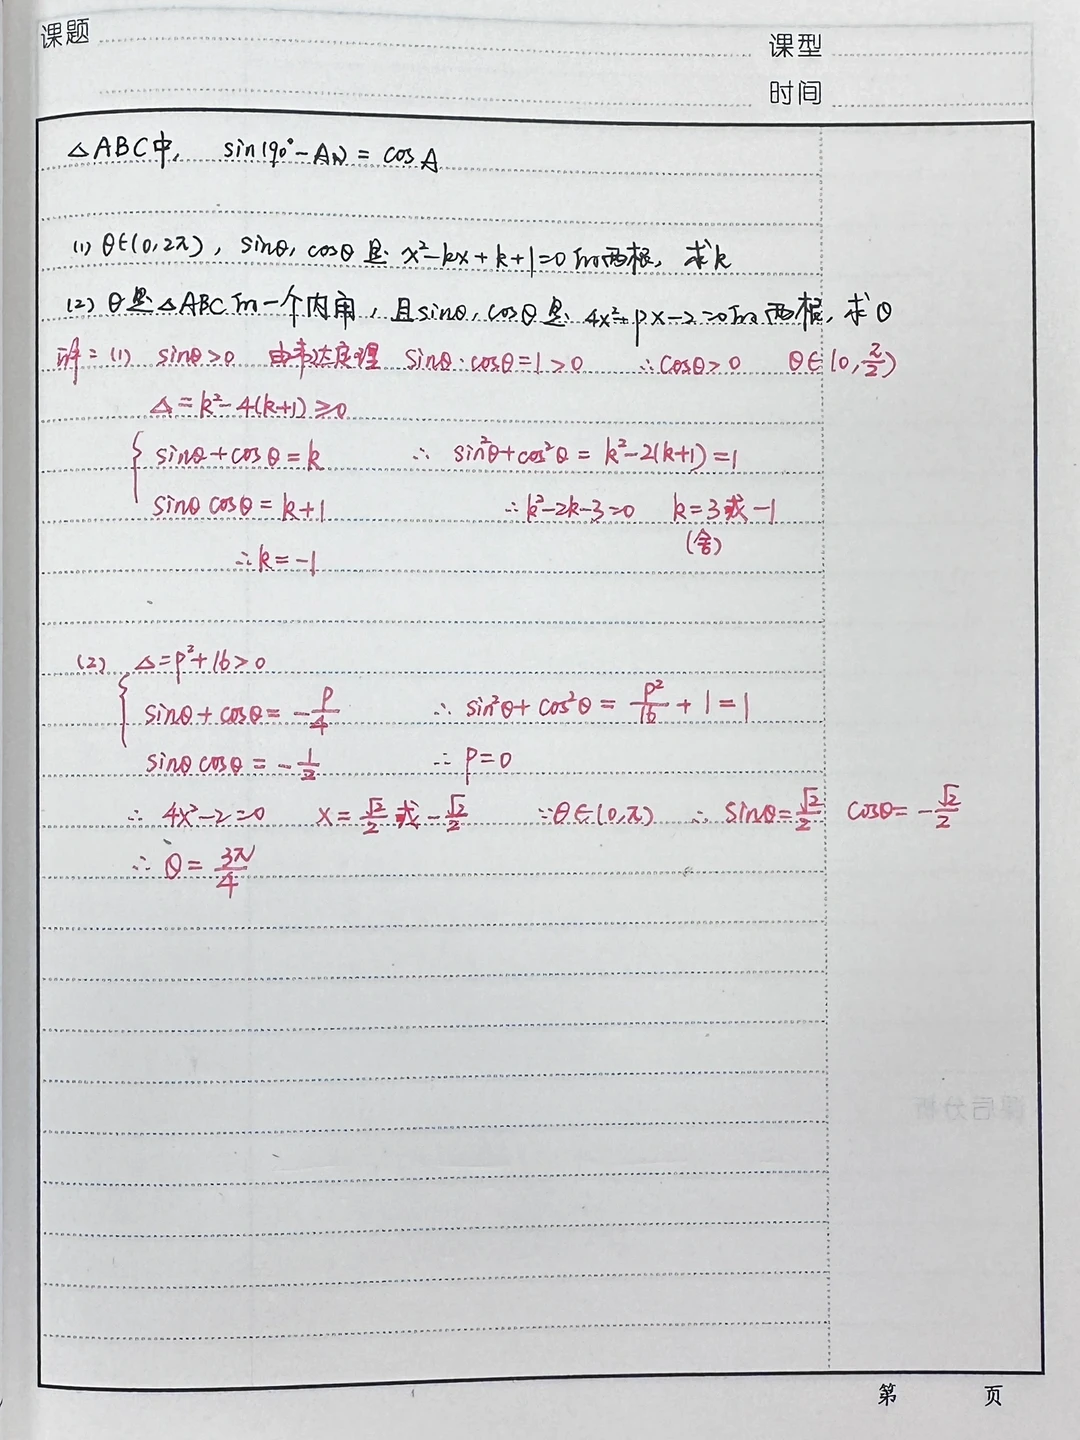 课题
课型
时间
△ABC中, sin(90°-A) = cosA
(1) θ∈(0,2π), sinθ, cosθ是 x²-kx+k+1=0的两根, 求k
(2) θ是△ABC的一个内角, 且sinθ, cosθ是 4x²+px-2=0的两根, 求θ
解: (1) sinθ>0 由韦达定理 sinθ·cosθ=1>0 ∴cosθ>0 θ∈(0,π/2)
△=k²-4(k+1)≥0
{ sinθ+cosθ=k ∴ sin²θ+cos²θ = k²-2(k+1)=1
sinθcosθ=k+1 ∴k²-2k-3=0 k=3或-1
(舍)
∴k=-1
(2) △=p²+16>0
{ sinθ+cosθ=-p/4 ∴ sin²θ+cos²θ = p²/16+1=1
sinθcosθ=-1/2 ∴p=0
∴ 4x²-2=0 x=√2/2或-√2/2 ∵θ∈(0,π) ∴ sinθ=√2/2 cosθ=-√2/2
∴ θ=3π/4
第 页